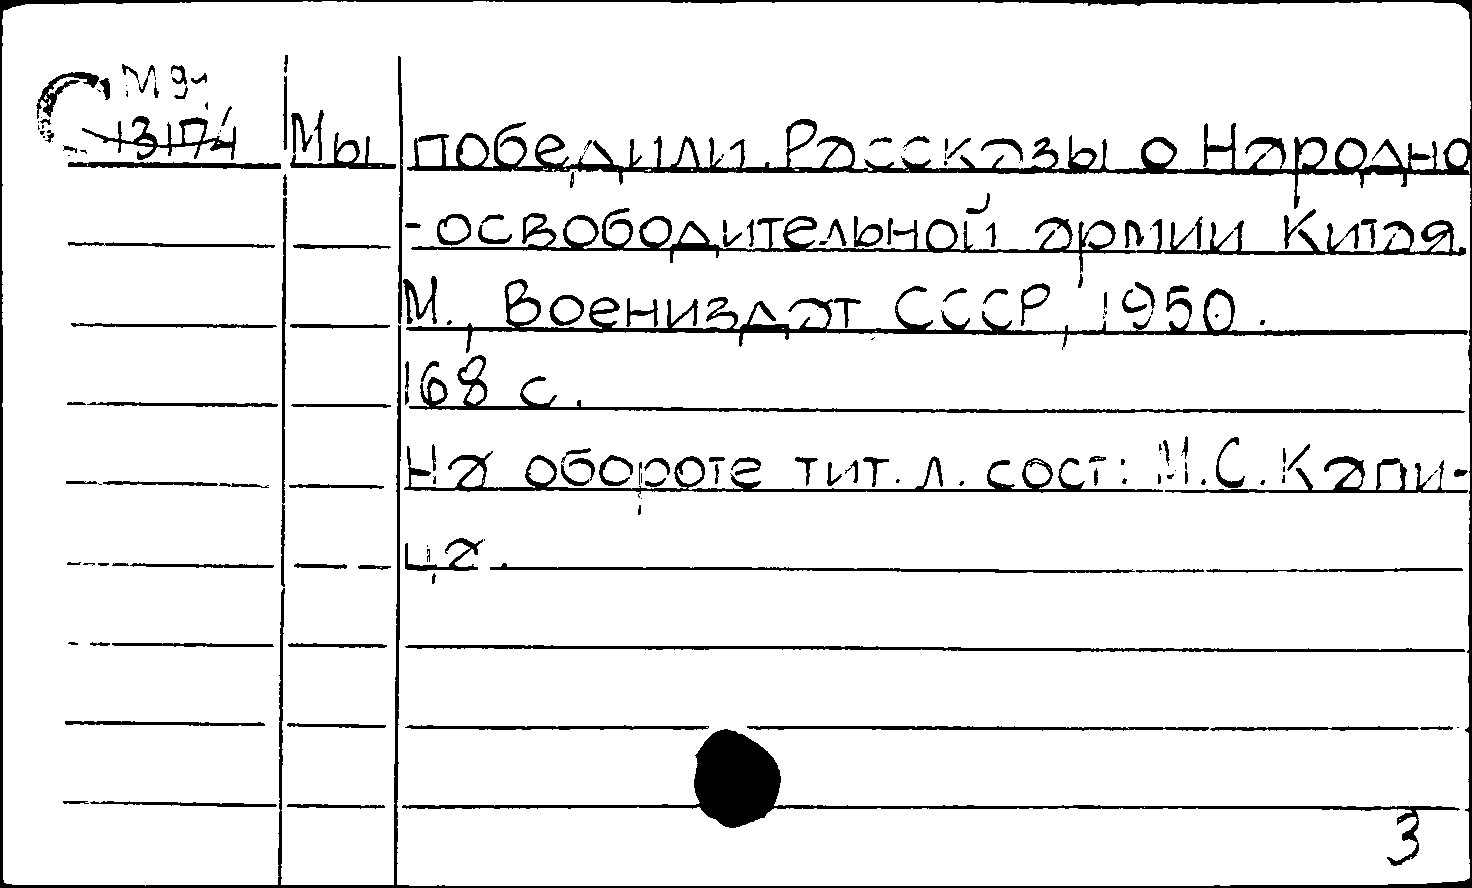 М 94
13174
Мы победили. Рассказы о Народно
-освободительной армии Китая.
М., Воениздат СССР, 1950.
168 с.
На обороте тит. л. сост: М.С. Капи-
ца.
3